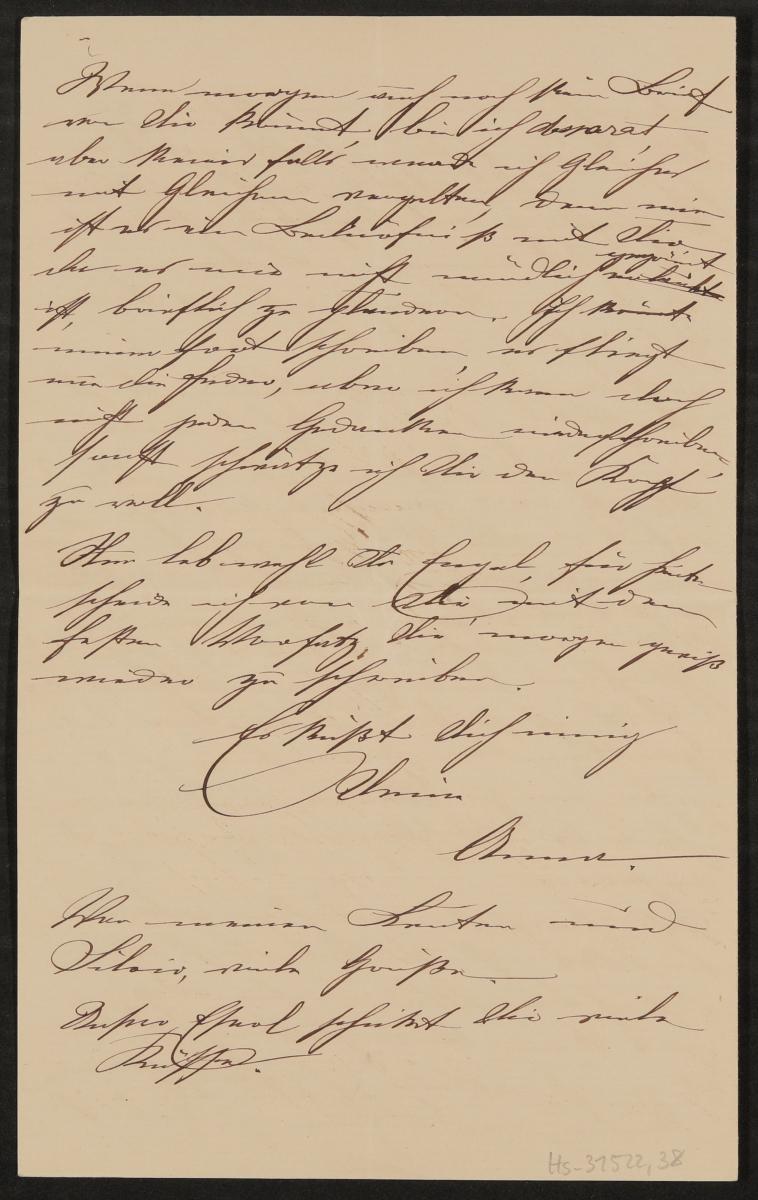 Wenn morgen auch noch kein Brief
von Dir kommt, bin ich desparat,
aber keinesfalls werde ich Gleiches
mit Gleichem vergelten, denn mir
ist es ein Bedürfniß mit Dir,
da es mir nicht mündlich vergönnt
ist, brieflich zu plaudern. Ich könnte
immer fort schreiben, es fliegt
nur die Feder, aber ich kann doch
nicht jeden Gedanken niederschreiben,
sonst schwätze ich Dir den Kopf
zu voll.
Nun leb wohl Du Engel, für heute
scheide ich von Dir mit dem
festen Vorsatz, Dir morgen gewiß
wieder zu schreiben.
Es küßt Dich innig
Deine
Anna.
Von meinen Leuten und
Silvio, viele Grüße.
schickt Dir viele
Küsse.
Hs-31522,38